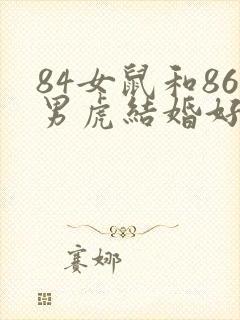 84女鼠和86
男虎結婚好
賽娜